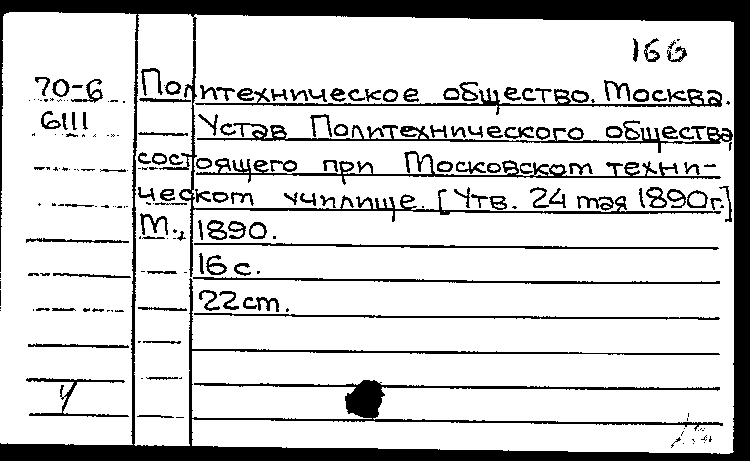 166
70-6 Политехническое общество. Москва.
6111 Устав Политехнического общества
состоящего при Московском техни-
ческом училище. [Утв. 24 мая 1890г.]
М., 1890.
16 с.
22 см.